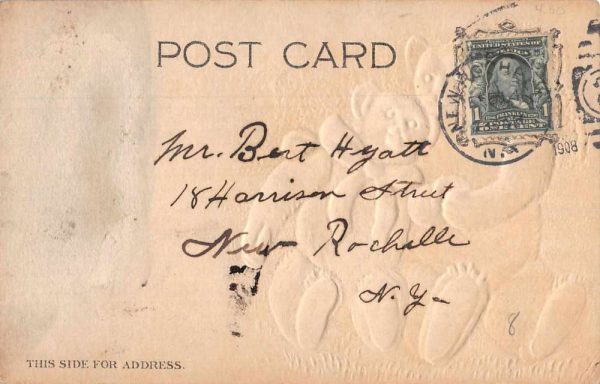 POST CARD
UNITED STATES OF
1
FRANKLIN
POSTAGE
ONE CENT
N.Y.
1908
Mr. Bert Hyatt
18 Harrison Street
New Rochelle
N.Y-
8
THIS SIDE FOR ADDRESS.